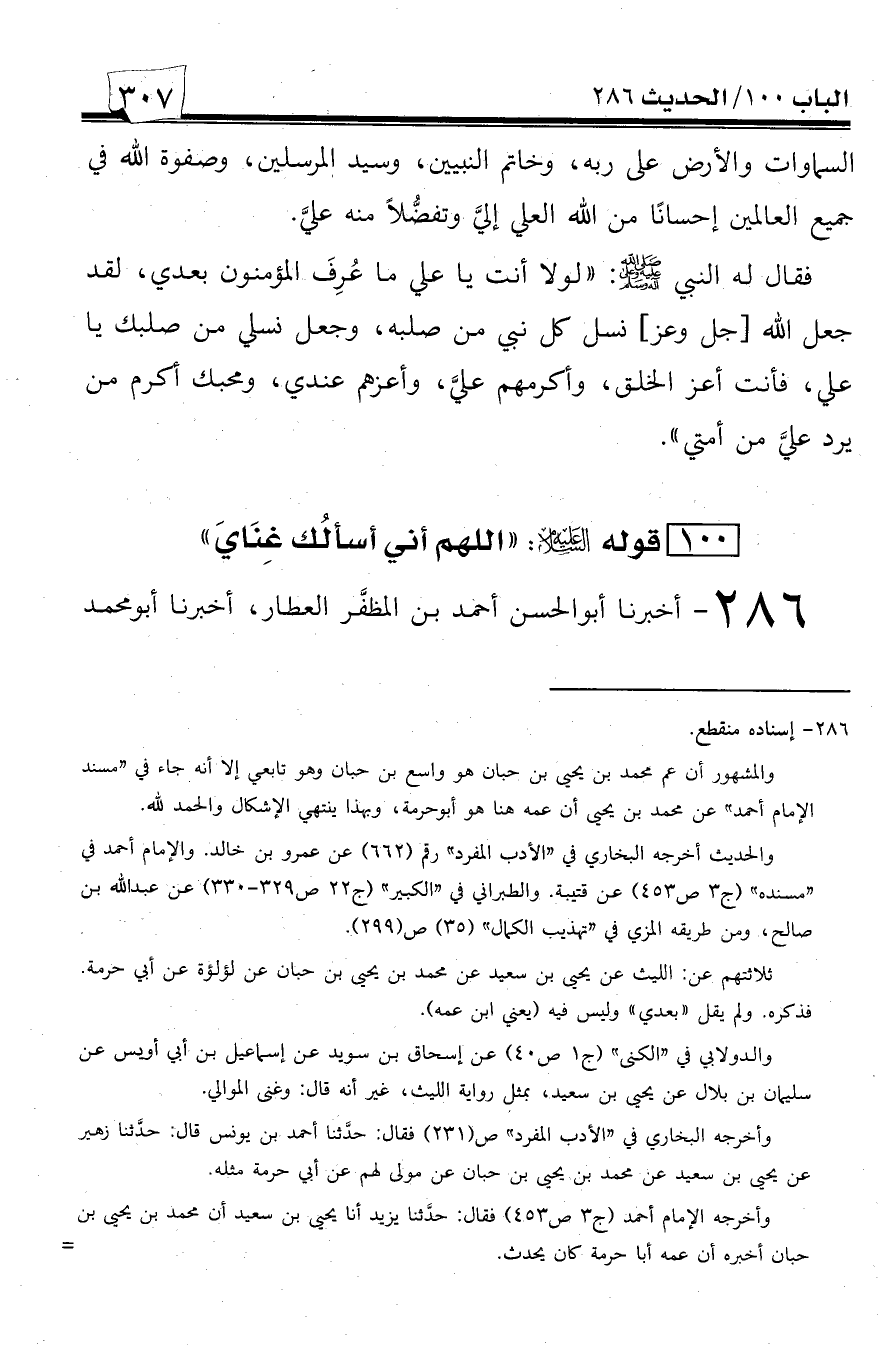 الباب ١٠٠/ الحديث ٢٨٦
٣٠٧
السماوات والأرض على ربه، وخاتم النبيين، وسيد المرسلين، وصفوة الله في
جميع العالمين إحسانًا من الله العلي إليَّ وتفضُّلاً منه عليَّ.
فقال له النبي ﷺ: «لولا أنت يا علي ما عُرِفَ المؤمنون بعدي، لقد
جعل الله [جل وعز] نسل كل نبي من صلبه، وجعل نسلي من صلبك يا
علي، فأنت أعز الخلق، وأكرمهم عليَّ، وأعزهم عندي، ومحبك أكرم من
يرد عليَّ من أمتي».
١٠٠ قوله عليه السلام: «اللهم أني أسألُك غِنَايَ»
٢٨٦- أخبرنا أبوالحسن أحمد بن المظفَّر العطار، أخبرنا أبومحمد
٢٨٦- إسناده منقطع.
والمشهور أن عم محمد بن يحيى بن حبان هو واسع بن حبان وهو تابعي إلا أنه جاء في «مسند
الإمام أحمد» عن محمد بن يحيى أن عمه هنا هو أبوحرمة، وبهذا ينتهي الإشكال والحمد لله.
والحديث أخرجه البخاري في «الأدب المفرد» رقم (٦٦٢) عن عمرو بن خالد. والإمام أحمد في
«مسنده» (ج٣ ص٤٥٣) عن قتيبة. والطبراني في «الكبير» (ج٢٢ ص٣٢٩-٣٣٠) عن عبدالله بن
صالح، ومن طريقه المزي في «تهذيب الكمال» (٣٥) ص(٢٩٩).
ثلاثتهم عن: الليث عن يحيى بن سعيد عن محمد بن يحيى بن حبان عن لؤلؤة عن أبي حرمة.
فذكره. ولم يقل «بعدي» وليس فيه (يعني ابن عمه).
والدولابي في «الكنى» (ج١ ص٤٠) عن إسحاق بن سويد عن إسماعيل بن أبي أويس عن
سليمان بن بلال عن يحيى بن سعيد، بمثل رواية الليث، غير أنه قال: وغنى الموالي.
وأخرجه البخاري في «الأدب المفرد» ص(٢٣١) فقال: حدَّثنا أحمد بن يونس قال: حدَّثنا زهير
عن يحيى بن سعيد عن محمد بن يحيى بن حبان عن مولى لهم عن أبي حرمة مثله.
وأخرجه الإمام أحمد (ج٣ ص٤٥٣) فقال: حدَّثنا يزيد أنا يحيى بن سعيد أن محمد بن يحيى بن
حبان أخبره أن عمه أبا حرمة كان يحدث.
=